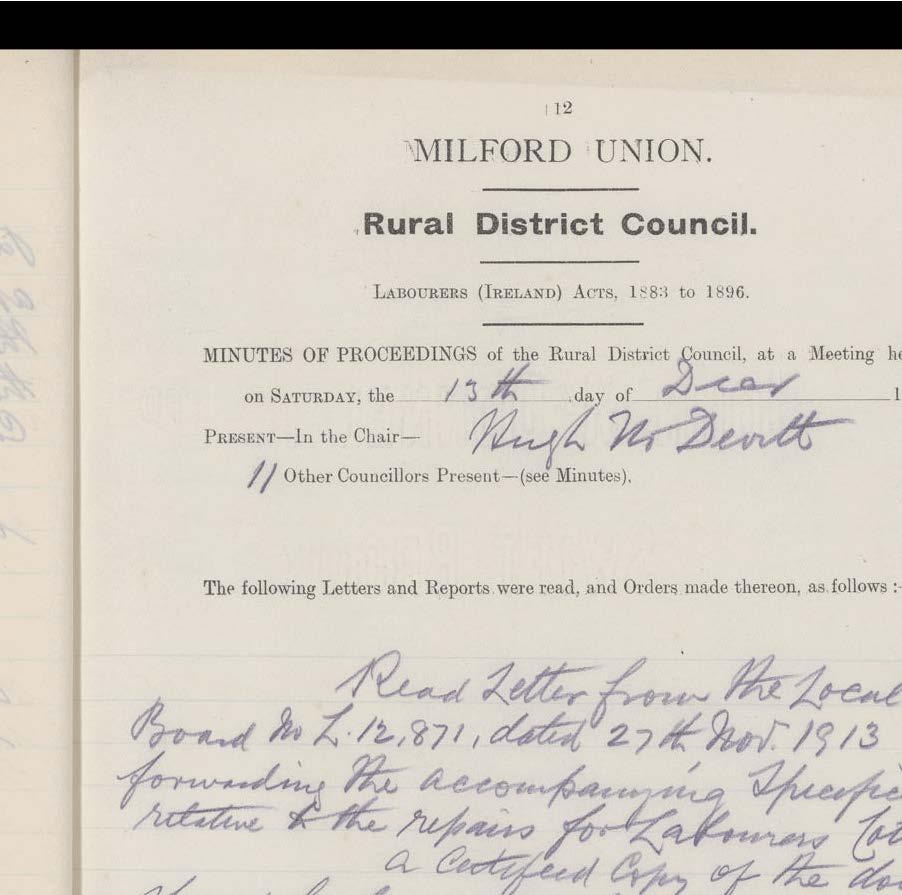 12
MILFORD UNION.
Rural District Council.
LABOURERS (IRELAND) ACTS, 1883 to 1896.
MINUTES OF PROCEEDINGS of the Rural District Council, at a Meeting he
on SATURDAY, the 13th day of Decr 1
PRESENT—In the Chair— Hugh McDevitt
11 Other Councillors Present—(see Minutes).
The following Letters and Reports were read, and Orders made thereon, as follows :—
Read Letter from the Local
Board No L. 12,871, dated 27th Nov. 1913
forwarding the accompanying Specific
relative to the repairs for Labourers Cot
a Certified Copy of the do